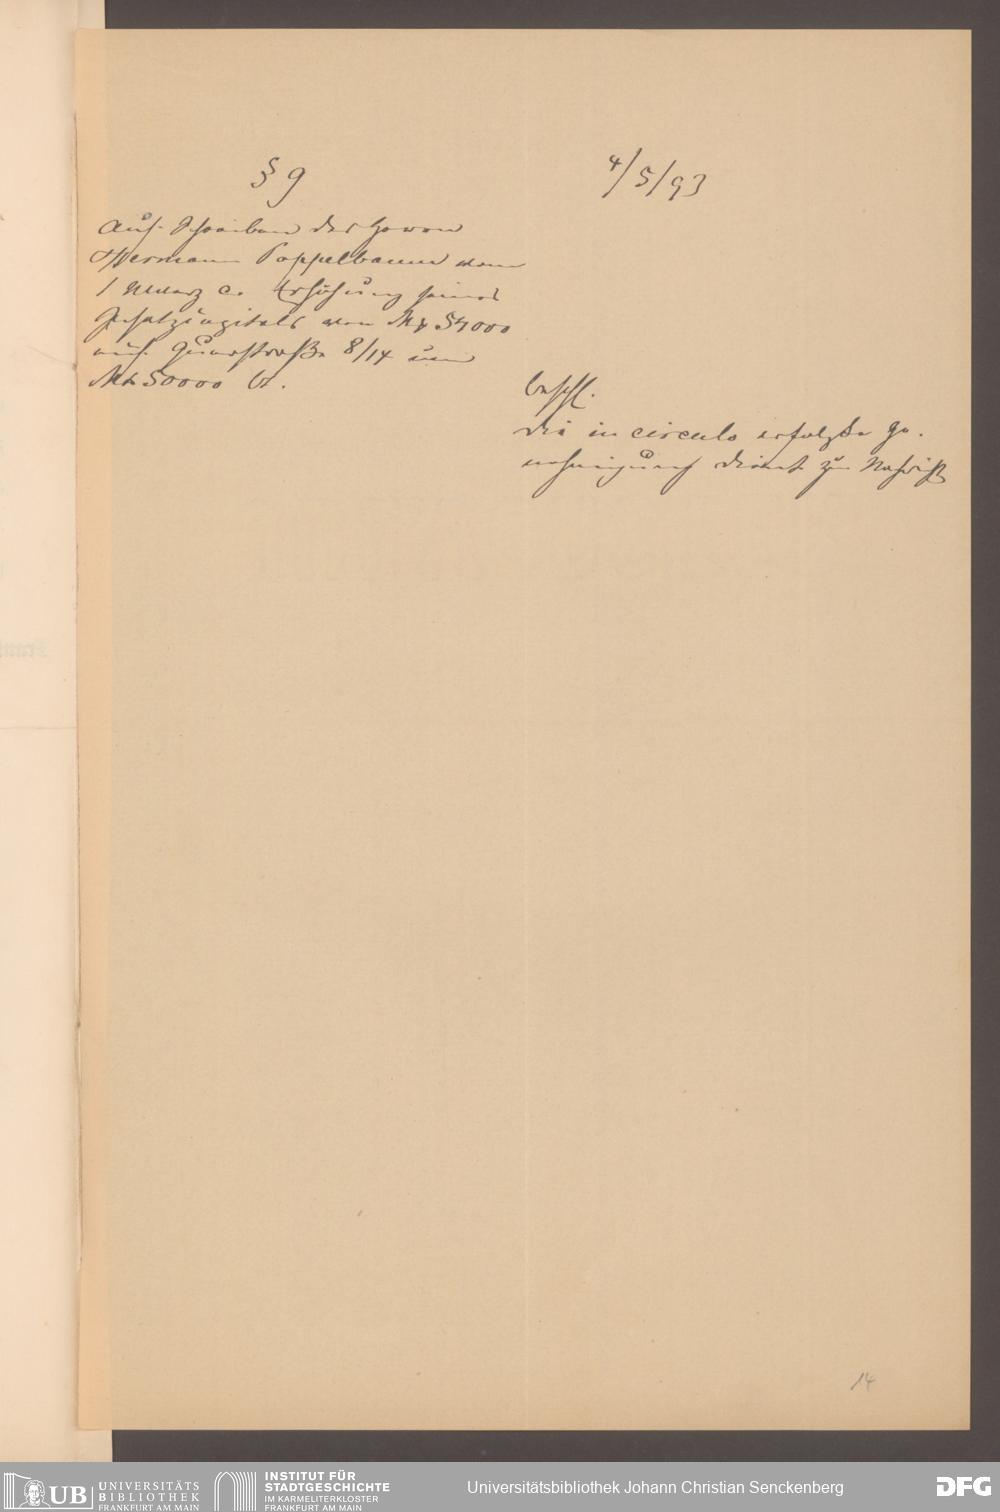 § 9
4/5/93
Auf Schreiben des Herrn
Hermann Poppelbaum vom
1 Maerz c. Erhöhung seines
von Mk 54000
auf 8/14 um
Mk 50000 btr.
beschl.
die in circulo erfolgte Ge-
nehmigung dient zur Nachricht
14
UB UNIVERSITÄTS
BIBLIOTHEK
FRANKFURT AM MAIN
INSTITUT FÜR
STADTGESCHICHTE
IM KARMELITERKLOSTER
FRANKFURT AM MAIN
Universitätsbibliothek Johann Christian Senckenberg
DFG